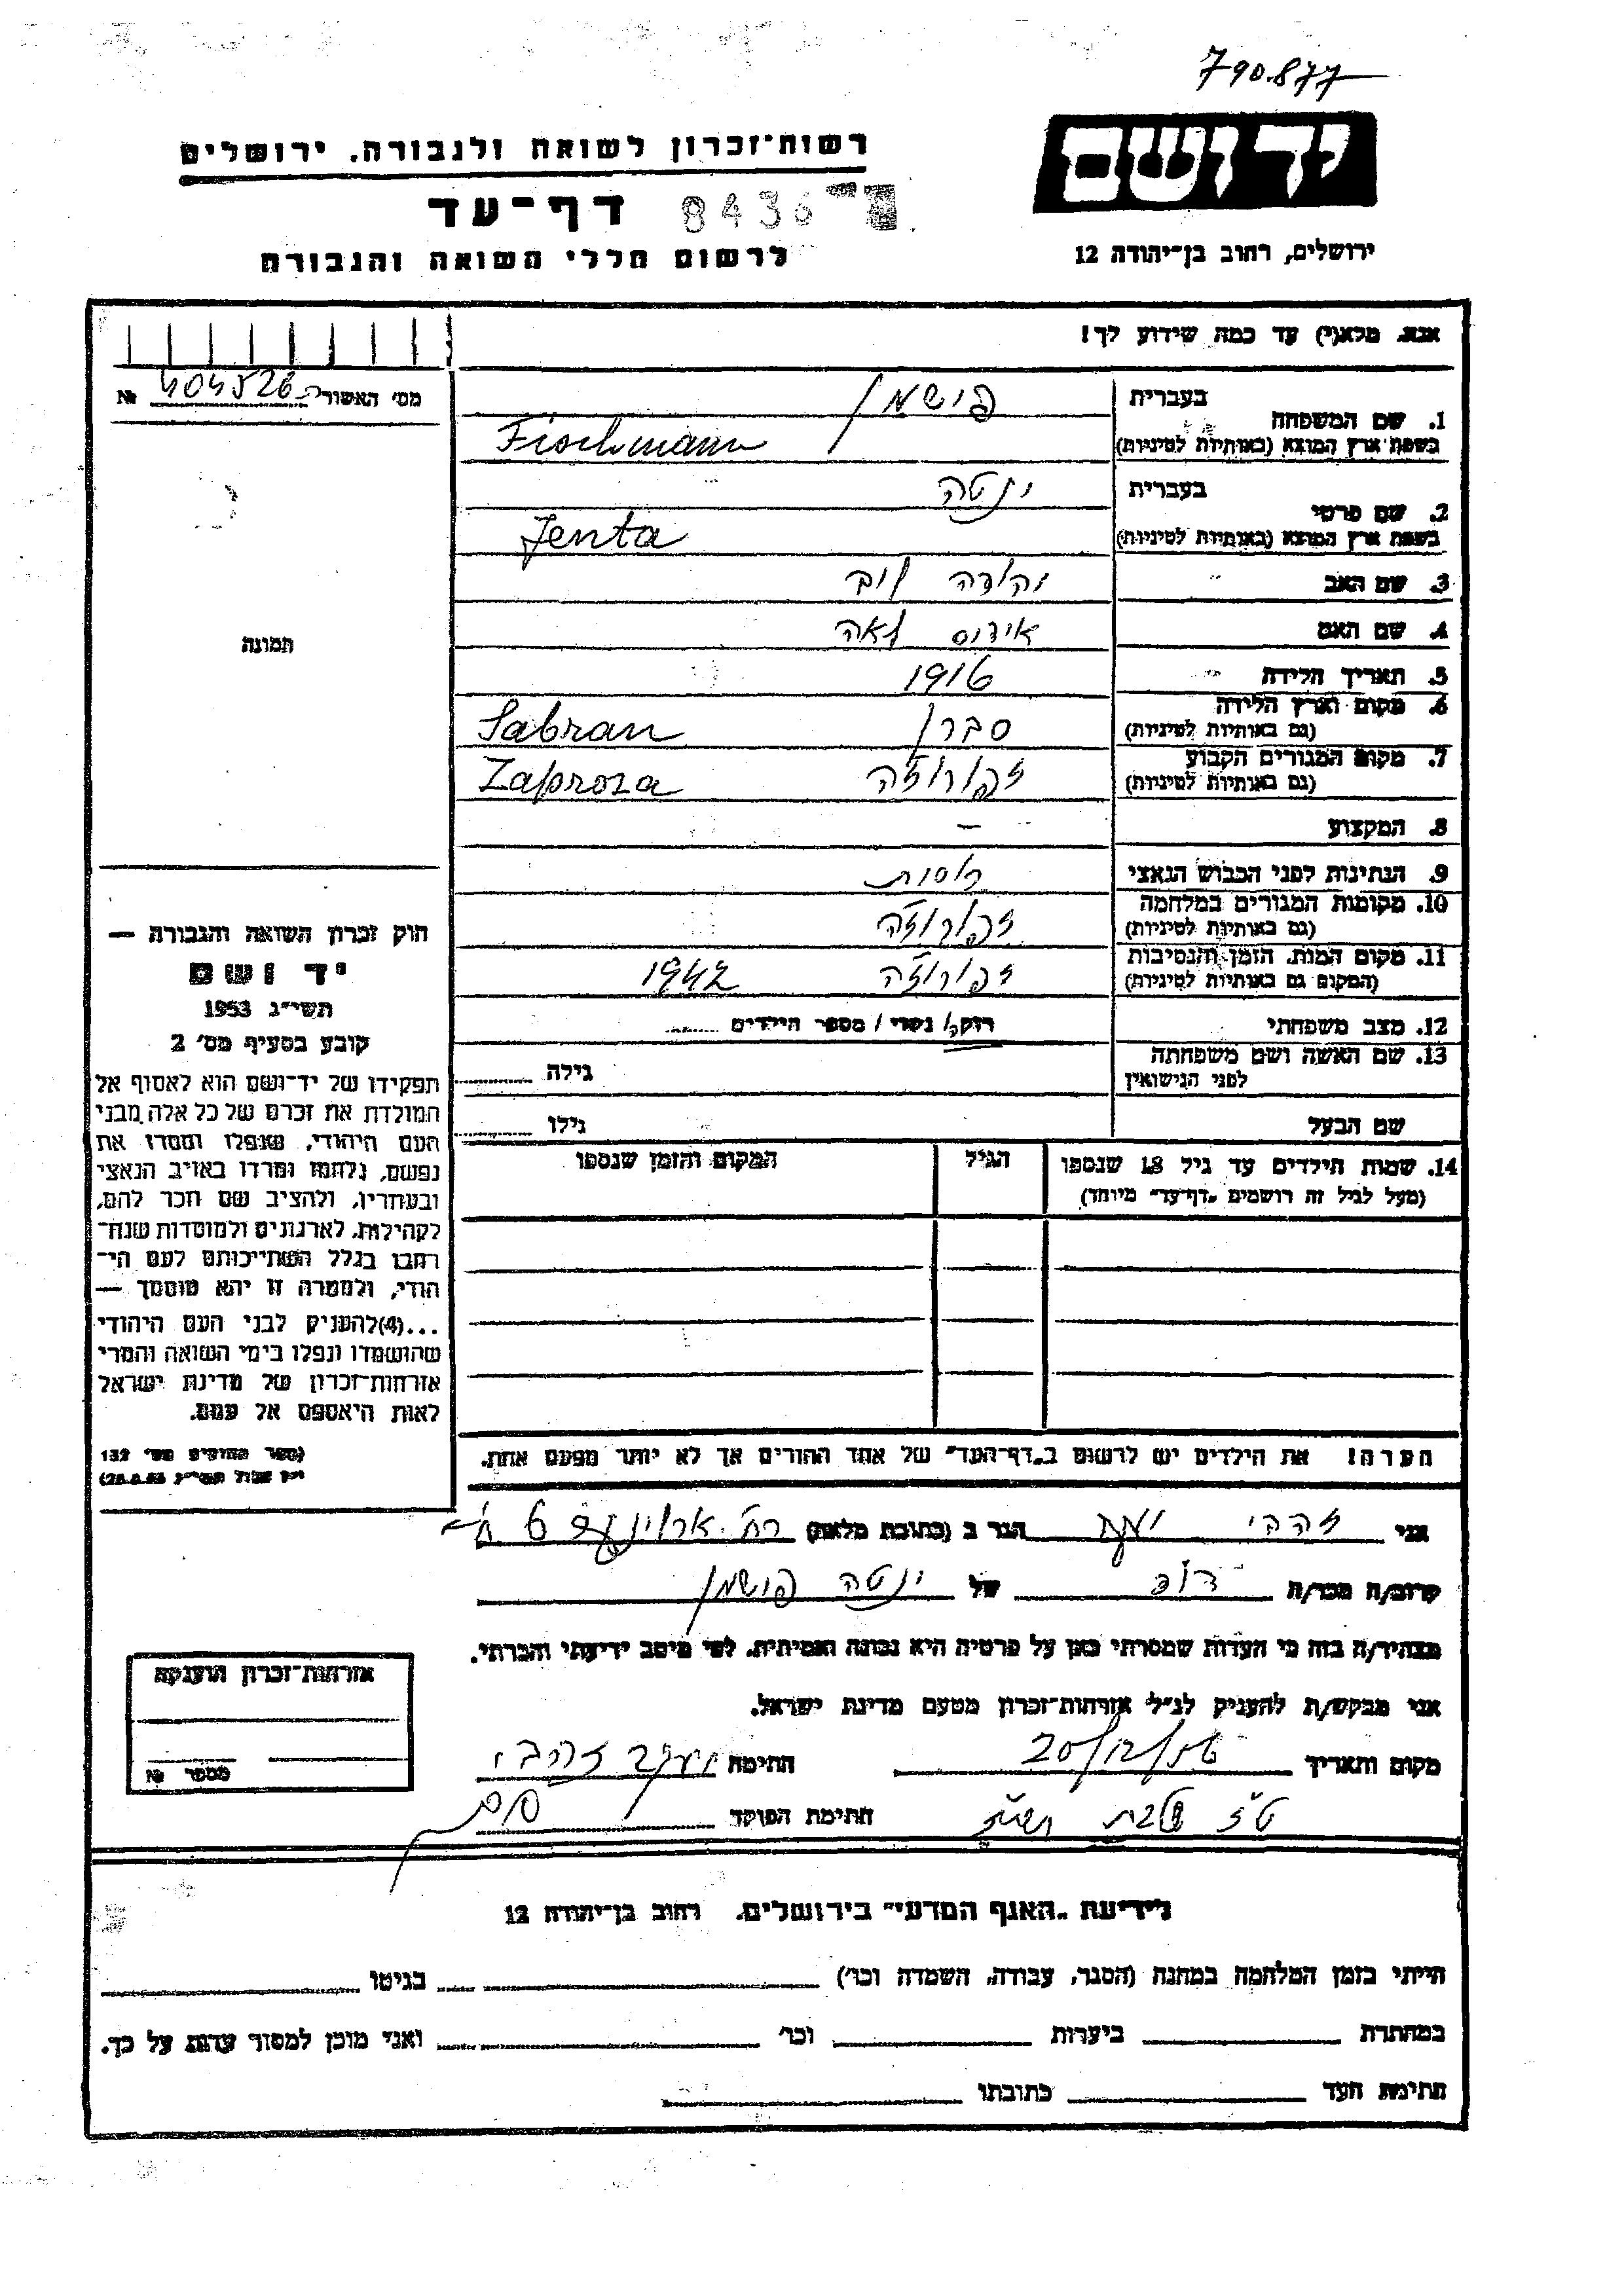 790.877
יד ושם
רשות־זכרון לשואה ולגבורה. ירושלים
דף־עד 8436
לרשום חללי השואה והגבורה
ירושלים, רחוב בן־יהודה 12
אנא. מלא(י) עד כמה שידוע לך!
מס׳ האשור 404526 №
1. שם המשפחה
בעברית פישמן
בשפת ארץ המוצא (באותיות לטיניות) Fischmann
2. שם פרטי
בעברית ינטה
בשפת ארץ המוצא (באותיות לטיניות) Jenta
3. שם האב יהודה לוב
4. שם האם לאה
5. תאריך הלידה 1916
6. מקום וארץ הלידה סברן Sabran
(גם באותיות לטיניות)
7. מקום המגורים הקבוע זפורוזה Zaproza
(גם באותיות לטיניות)
8. המקצוע —
9. הנתינות לפני הכבוש הנאצי רוסית
10. מקומות המגורים במלחמה זפורוזה
(גם באותיות לטיניות)
11. מקום המות. הזמן והנסיבות זפורוזה 1942
(המקום גם באותיות לטיניות)
12. מצב משפחתי רווק/ נשוי / מספר הילדים
13. שם האשה ושם משפחתה גילה
לפני הנישואין
שם הבעל גילו
14. שמות הילדים עד גיל 18 שנספו הגיל המקום והזמן שנספו
(מעל לגיל זה רושמים „דף־עד״ מיוחד)
תמונה
חוק זכרון השואה והגבורה —
יד ושם
תשי״ג 1953
קובע בסעיף מס׳ 2
תפקידו של יד־ושם הוא לאסוף אל
המולדת את זכרם של כל אלה מבני
העם היהודי, שנפלו ומסרו את
נפשם, נלחמו ומרדו באויב הנאצי
ובעוזריו, ולהציב שם וזכר להם,
לקהילות, לארגונים ולמוסדות שנח־
רבו בגלל השתייכותם לעם הי־
הודי, ולמטרה זו יהא מוסמך —
...(4)להעניק לבני העם היהודי
שהושמדו ונפלו בימי השואה והמרי
אזרחות־זכרון של מדינת ישראל
לאות היאספם אל עמם.
(ספר החוקים מס׳ 132
הערה! את הילדים יש לרשום ב„דף־העד״ של אחד ההורים אך לא יותר מפעם אחת.
אני זהבי הגר ב (כתובת מלאה) רח׳
קרוב/ה מכר/ה דוד של ינטה פישמן
מצהיר/ה בזה כי העדות שמסרתי כאן על פרטיה היא נכונה ואמיתית. לפי מיטב ידיעתי והכרתי.
אני מבקש/ת להעניק לנ״ל אזרחות־זכרון מטעם מדינת ישראל.
מקום ותאריך 20/12/56 חתימה יעקב זהבי
ט״ז טבת תשי״ז חתימת הפוקד
אזרחות־זכרון הוענקה
מספר №
לידיעת „האגף המדעי״ בירושלים. רחוב בן־יהודה 12
הייתי בזמן המלחמה במחנה (הסגר, עבודה, השמדה וכו׳) בגיטו
במחתרת ביערות וכו׳ ואני מוכן למסור עדות על כך.
חתימת העד כתובתו